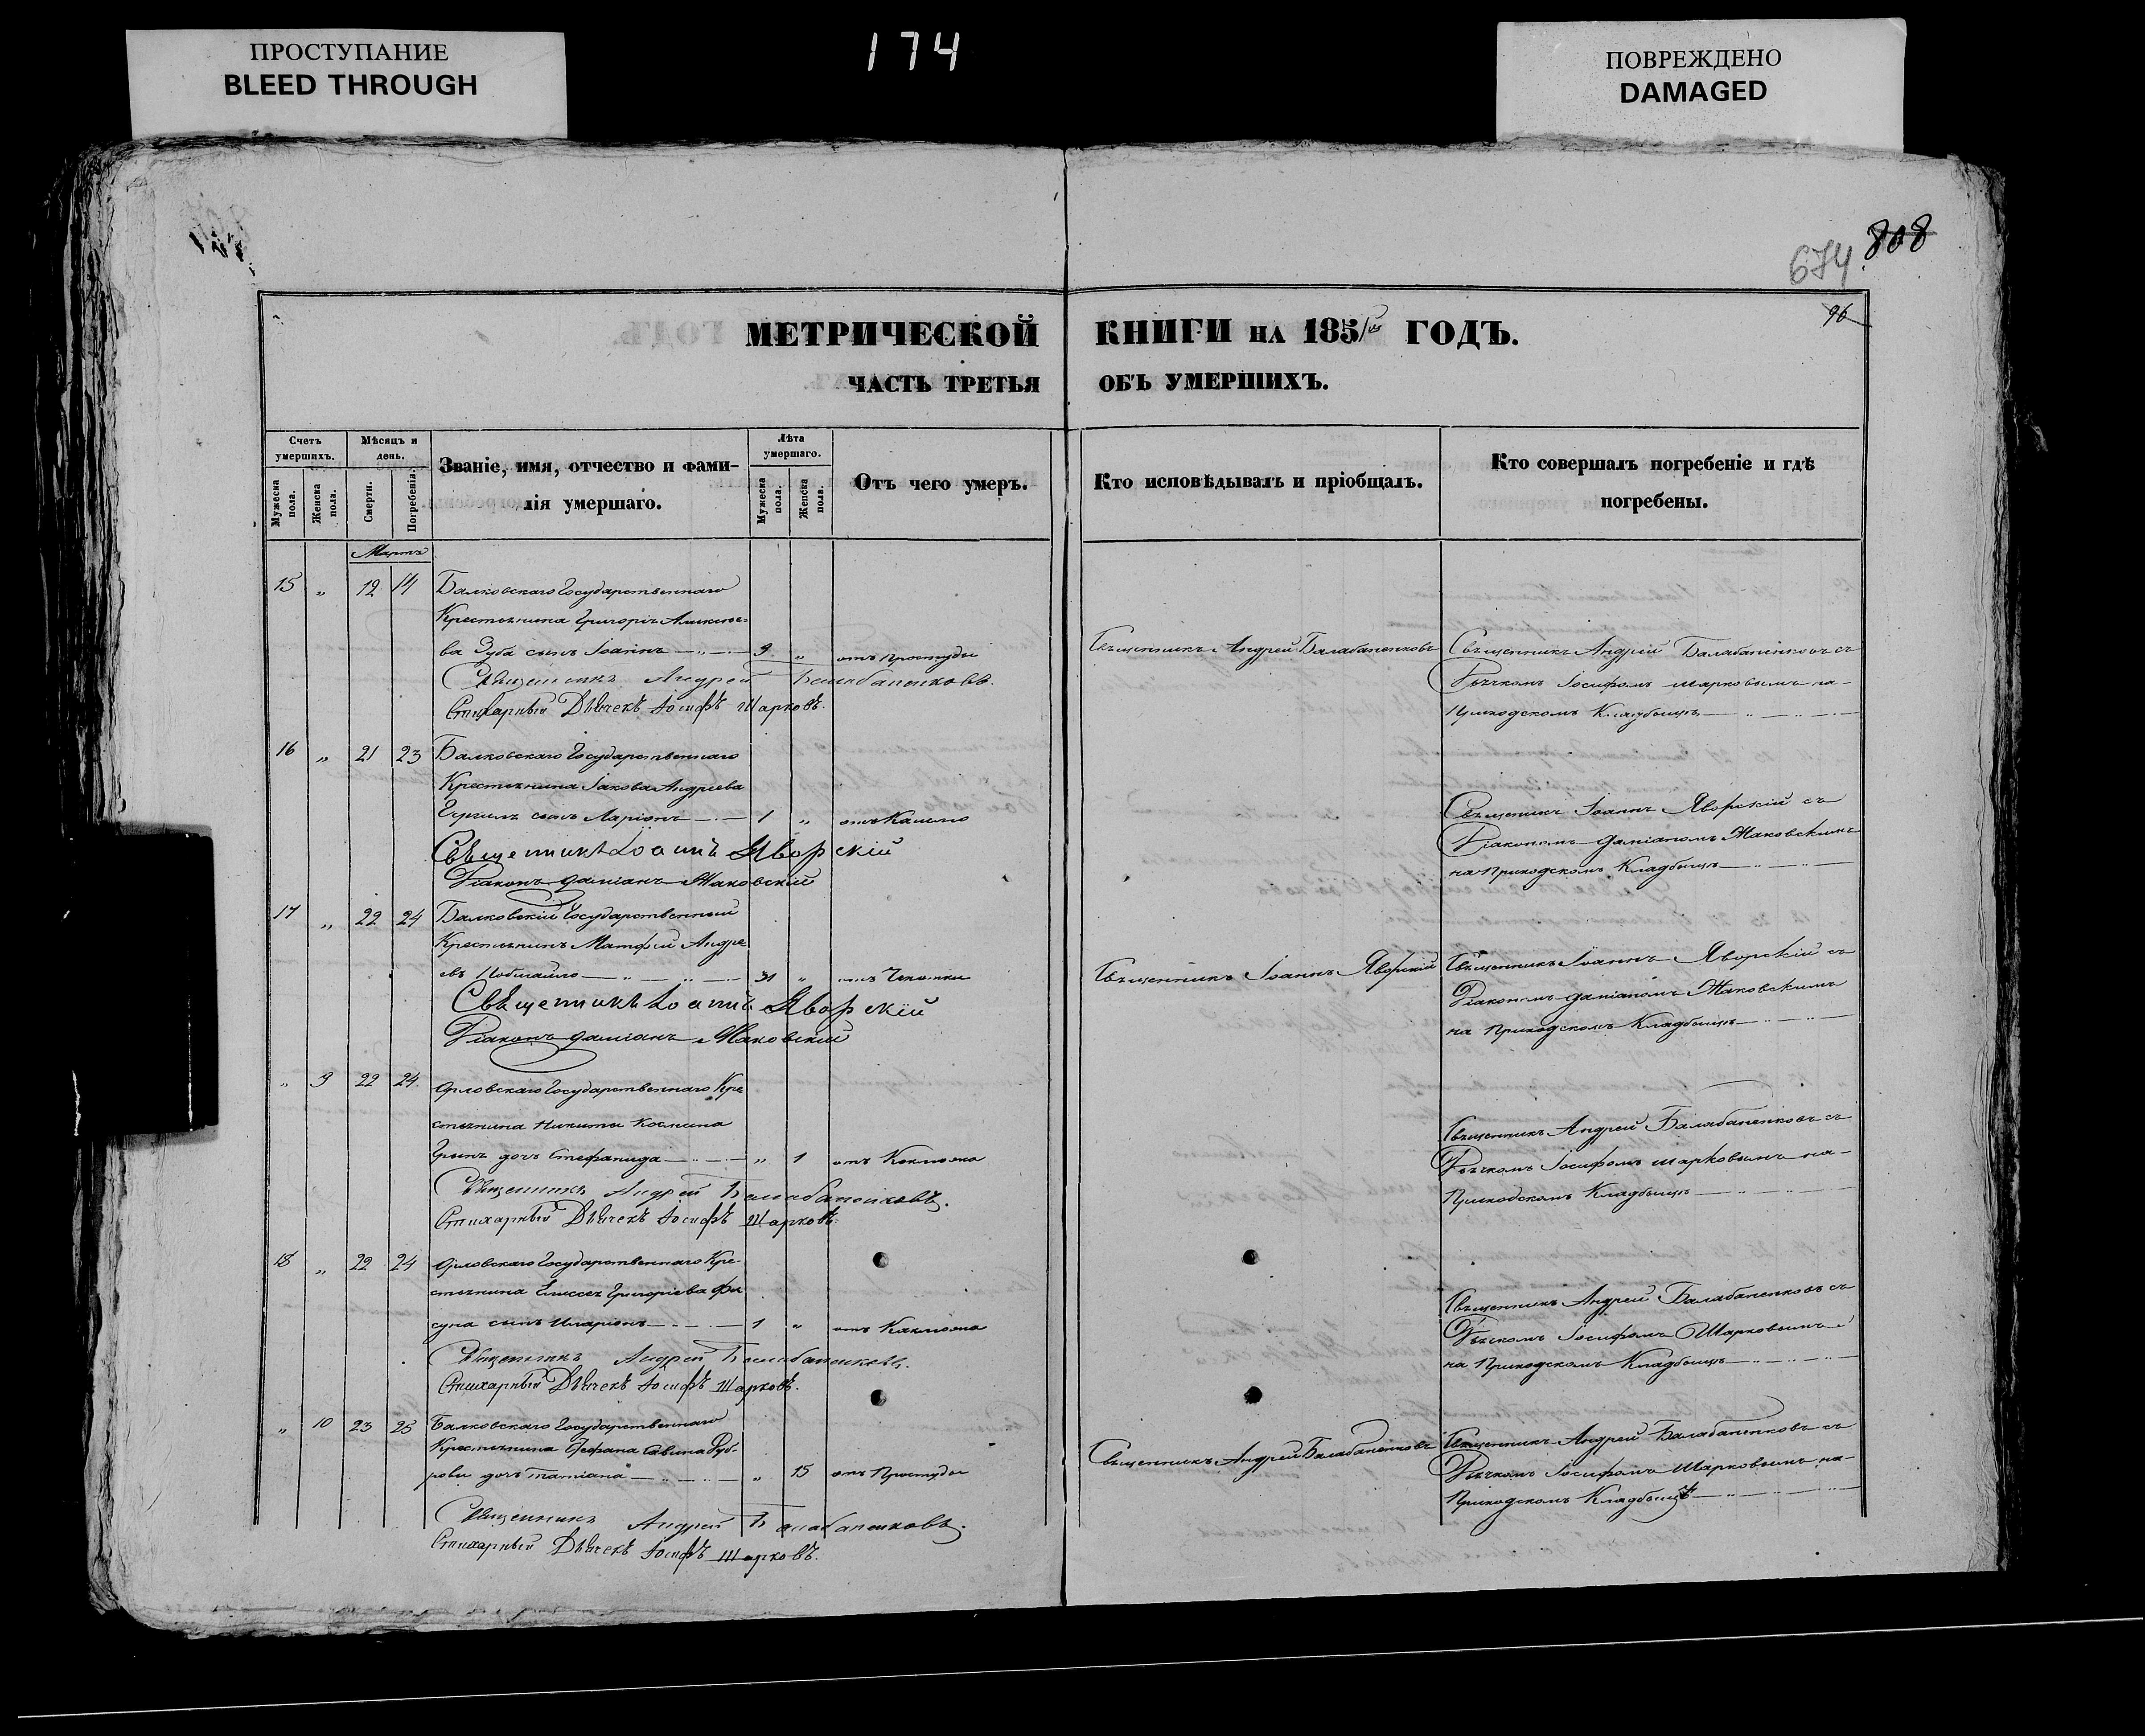 ПРОСТУПАНИЕ
BLEED THROUGH
174
ПОВРЕЖДЕНО
DAMAGED
808
674
96
МЕТРИЧЕСКОЙ КНИГИ НА 185 ГОДЪ.
ЧАСТЬ ТРЕТЬЯ ОБЪ УМЕРШИХЪ.
Счетъ умершихъ.
Мужеска пола.
Женска пола.
Мѣсяцъ и день.
Смерти.
Погребенія.
Званіе, имя, отчество и фами-
лія умершаго.
Лѣта умершаго.
Мужеска пола.
Женска пола.
Отъ чего умеръ.
Кто исповѣдывалъ и пріобщалъ.
Кто совершалъ погребеніе и гдѣ
погребены.
Мартъ
15 „ 12 14 Балковскаго Государственнаго
Крестьянина Григорія Аликсѣе-
ва Зуба сынъ Іоаннъ 9 „ отъ Простуды
Священникъ Андрей Балабаненковъ
Священникъ Андрей Балабаненковъ съ
Дьячкомъ Іосифомъ Шарковымъ на-
Приходскомъ Кладбищѣ
Священникъ Андрей Балабаненковъ.
Стихарный Дьячекъ Іосифъ Шарковъ.
16 „ 21 23 Балковскаго Государственнаго
Крестьянина Іакова Андреева
сынъ Ларіонъ 1 „ отъ Кашлю
Священникъ Іоаннъ Яворскій съ
Діакономъ Даміаномъ Маковскимъ
на Приходскомъ Кладбищѣ
Священникъ Іоаннъ Яворскій
Діаконъ Даміанъ Маковскій
17 „ 22 24 Балковскій Государственный
Крестьянинъ Матфей Андре
евъ 31 „ отъ Чахотки
Священникъ Іоаннъ Яворскій
Священникъ Іоаннъ Яворскій съ
Діакономъ Даміаномъ Маковскимъ
на Приходскомъ Кладбищѣ
Священникъ Іоаннъ Яворскій
Діаконъ Даміанъ Маковскій
„ 9 22 24 Орловскаго Государственнаго Кре
стьянина Никиты Космина
дочь Стефанида „ 1 отъ Коклюша
Священникъ Андрей Балабаненковъ съ
Дьячкомъ Іосифомъ Шарковымъ на-
Приходскомъ Кладбищѣ
Священникъ Андрей Балабаненковъ.
Стихарный Дьячекъ Іосифъ Шарковъ.
18 „ 22 24 Орловскаго Государственнаго Кре-
стьянина Елиссея Григоріева Фи
суна сынъ Иларіонъ 1 „ отъ Коклюша
Священникъ Андрей Балабаненковъ съ
Дьячкомъ Іосифомъ Шарковымъ
на Приходскомъ Кладбищѣ
Священникъ Андрей Балабаненковъ.
Стихарный Дьячекъ Іосифъ Шарковъ.
„ 10 23 25 Балковскаго Государственнаго
Крестьянина Савина
дочь Татіана „ 15 отъ Простуды
Священникъ Андрей Балабаненковъ
Священникъ Андрей Балабаненковъ съ
Дьячкомъ Іосифомъ Шарковымъ на-
Приходскомъ Кладбищѣ
Священникъ Андрей Балабаненковъ.
Стихарный Дьячекъ Іосифъ Шарковъ.